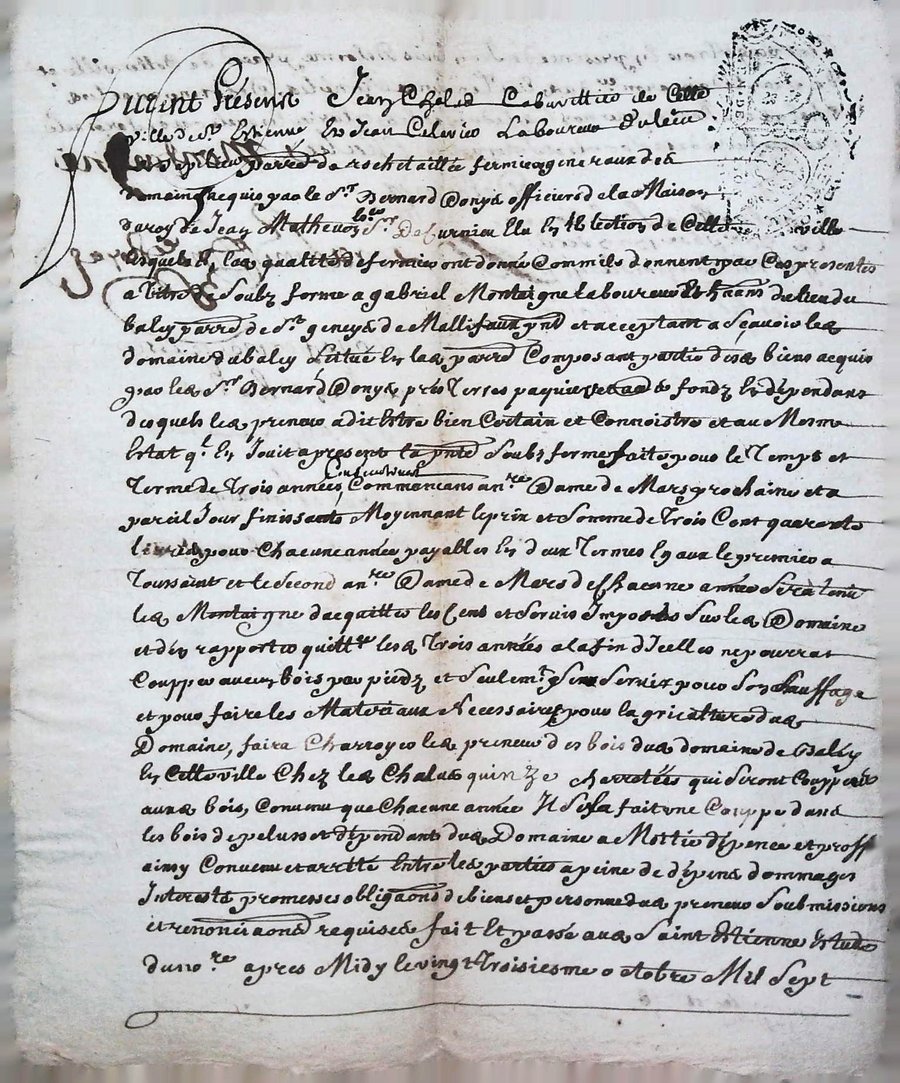 furent présents Jean Chalas Cabarettier de Cette
ville de St Estienne Et Jean Laboureur du lieu
parre de rochetaillée fermiers generaux des
domaines acquis par le Sr Bernard officiers de la Maison
du roy de Jean Mathevon Sr De Curnieu Elu En l'Election de Cette ville
lesquels En la qualité de fermiers ont donné Comme ils donnent par Ces presentes
a titre de Soubz ferme a gabriel Montaigne laboureur du lieu du
balay parre de St geneys de Mallifaux pnt et acceptant a Scavoir le
domaine du balay Situé En lad parre Composant partie desd biens acquis
par led Sr Bernard prés Terres paquiers fondz Et dépendans
desquels led preneur a dit Estre bien Certain et Connoistre et au Mesme
Estat ql En Jouit apresent la pnte Soubz ferme faite pour le Temps et
Terme de Trois années Consecutives Commencans a nre Dame de Mars prochaine et a
pareil Jour finissants Moyennant le prix et Somme de Trois Cent quarente
livres pour Chacune année payables En deux Termes Egaux le premier a
Toussaint et le Second a nre Dame de Mars de Chacune année Sera tenu
led Montaigne dacquitter les Cens et Servis Imposés Sur led Domaine
et den rapporter quittce lesd Trois années a la fin d'Icelles ne pourra
Coupper aucun bois par pied et Seulemt pour Son Chauffage
et pour faire les Materiaux Necessaires pour lagriculture dud
Domaine, faira Charroyer led preneur des bois dud domaine de Baley
En Cette ville Chez led Chalas quinze charretées qui Seront Couppées
auxd bois, Convenu que Chacune année Il Sera fait une Couppe dans
les bois de pelusset dépendants dud Domaine a Moitié dépence et proffit
ainsy Convenu et arretté Entre les parties a peine de dépens dommages
Interests promesses obligaons de biens et personne dud preneur Soubmissions
et renonciaons requises fait Et passé aud Saint Estienne Estude
du nore apres Midy le vingt troisiesme octobre Mil Sept